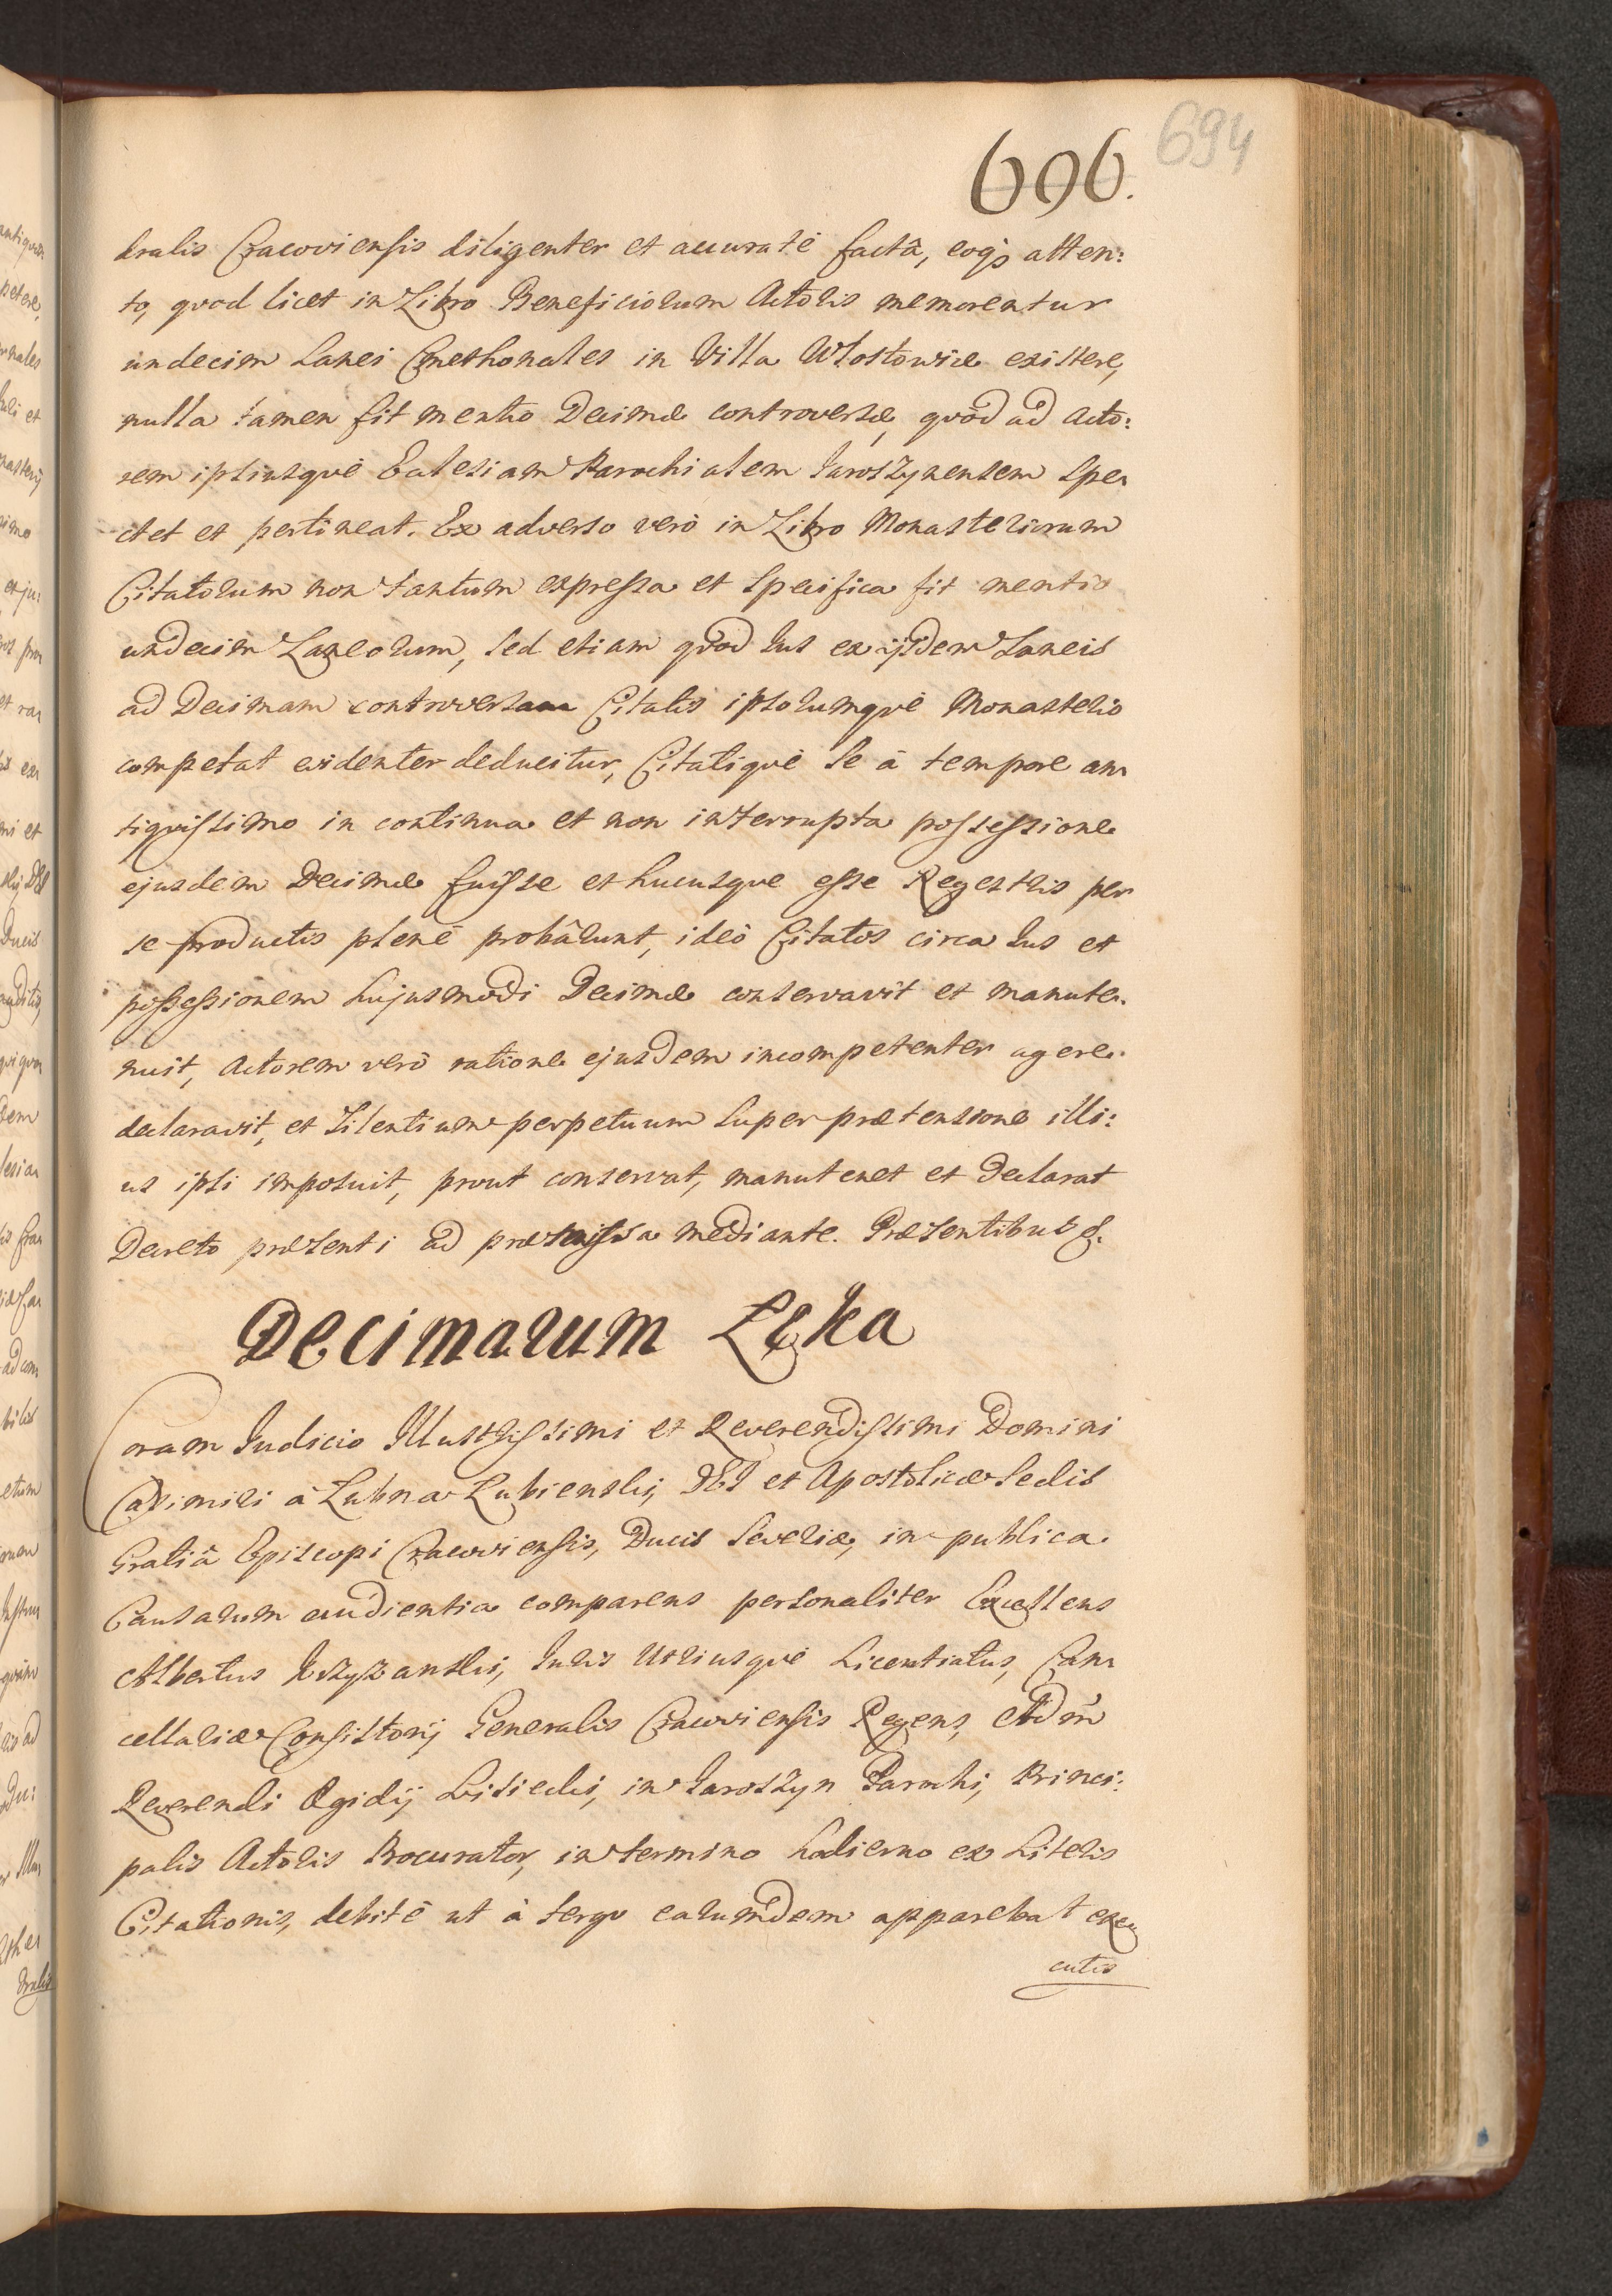 694
696.
dralis Cracoviensis diligenter et accuratè factâ, eoq; atten:
to, qvod licet in Libro Beneficiorum Actoris memorentur
undecim Lanei Cmethonales in Villa Włostowice existere,
nulla tamen fit mentio Decimæ controversæ, qvòd ad Acto:
rem ipsiusqvè Ecclesiam Parochialem Jaroszynensem spe:
ctet et pertineat. Ex adverso verò in Libro Monasteriorum
Citatorum non tantùm expressa et specifica fit mentio
undecim Laneorum, sed etiam qvòd Jus ex ijsdem Laneis
ad Decimam controversam Citatis ipsorumqvè Monasterio
competat evidenter deducitur, Citatiqvè se à tempore an:
tiqvissimo in continua et non interrupta possessione
ejusdem Decimæ fuisse et hucusqve esse Regestris per
se productis plenè probârunt, ideò Citatos circa Jus et
possessionem hujusmodi Decimæ conservavit et manute:
nuit, Actorem verò ratione ejusdem incompetenter agere
declaravit, et Silentium perpetuum super prætensione illi:
us ipsi imposuit, prout conservat, manutenet et declarat
Decreto præsenti ad præmissa mediante. Præsentibus &.
Decimarum Łęka
Coram Judicio Illustrissimi et Reverendissimi Domini
Casimiri à Łubna Łubienski, DEI et Apostolicæ Sedis
Gratiâ Episcopi Cracoviensis, Ducis Severiæ, in publica
Causarum audientia comparens personaliter Excellens
Albertus Krzyzanski, Juris Utriusqvè Licentiatus, Can:
cellariæ Consistorij Generalis Cracoviensis Regens, Adm̃
Reverendi Ægidij Lisiecki, in Jaroszyn Parochi, Princi:
palis Actoris Procurator, in termino hodierno ex Literis
Citationis, debitè ut à tergo earumdem apparebat exe
cutis